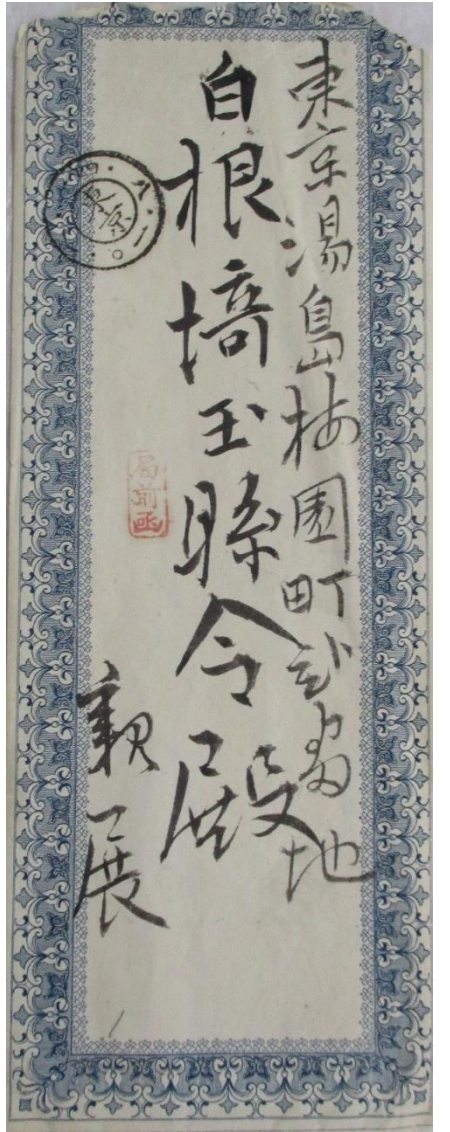 東京湯島梅園町弐番地
白根埼玉縣令殿
親展
局前函
東京